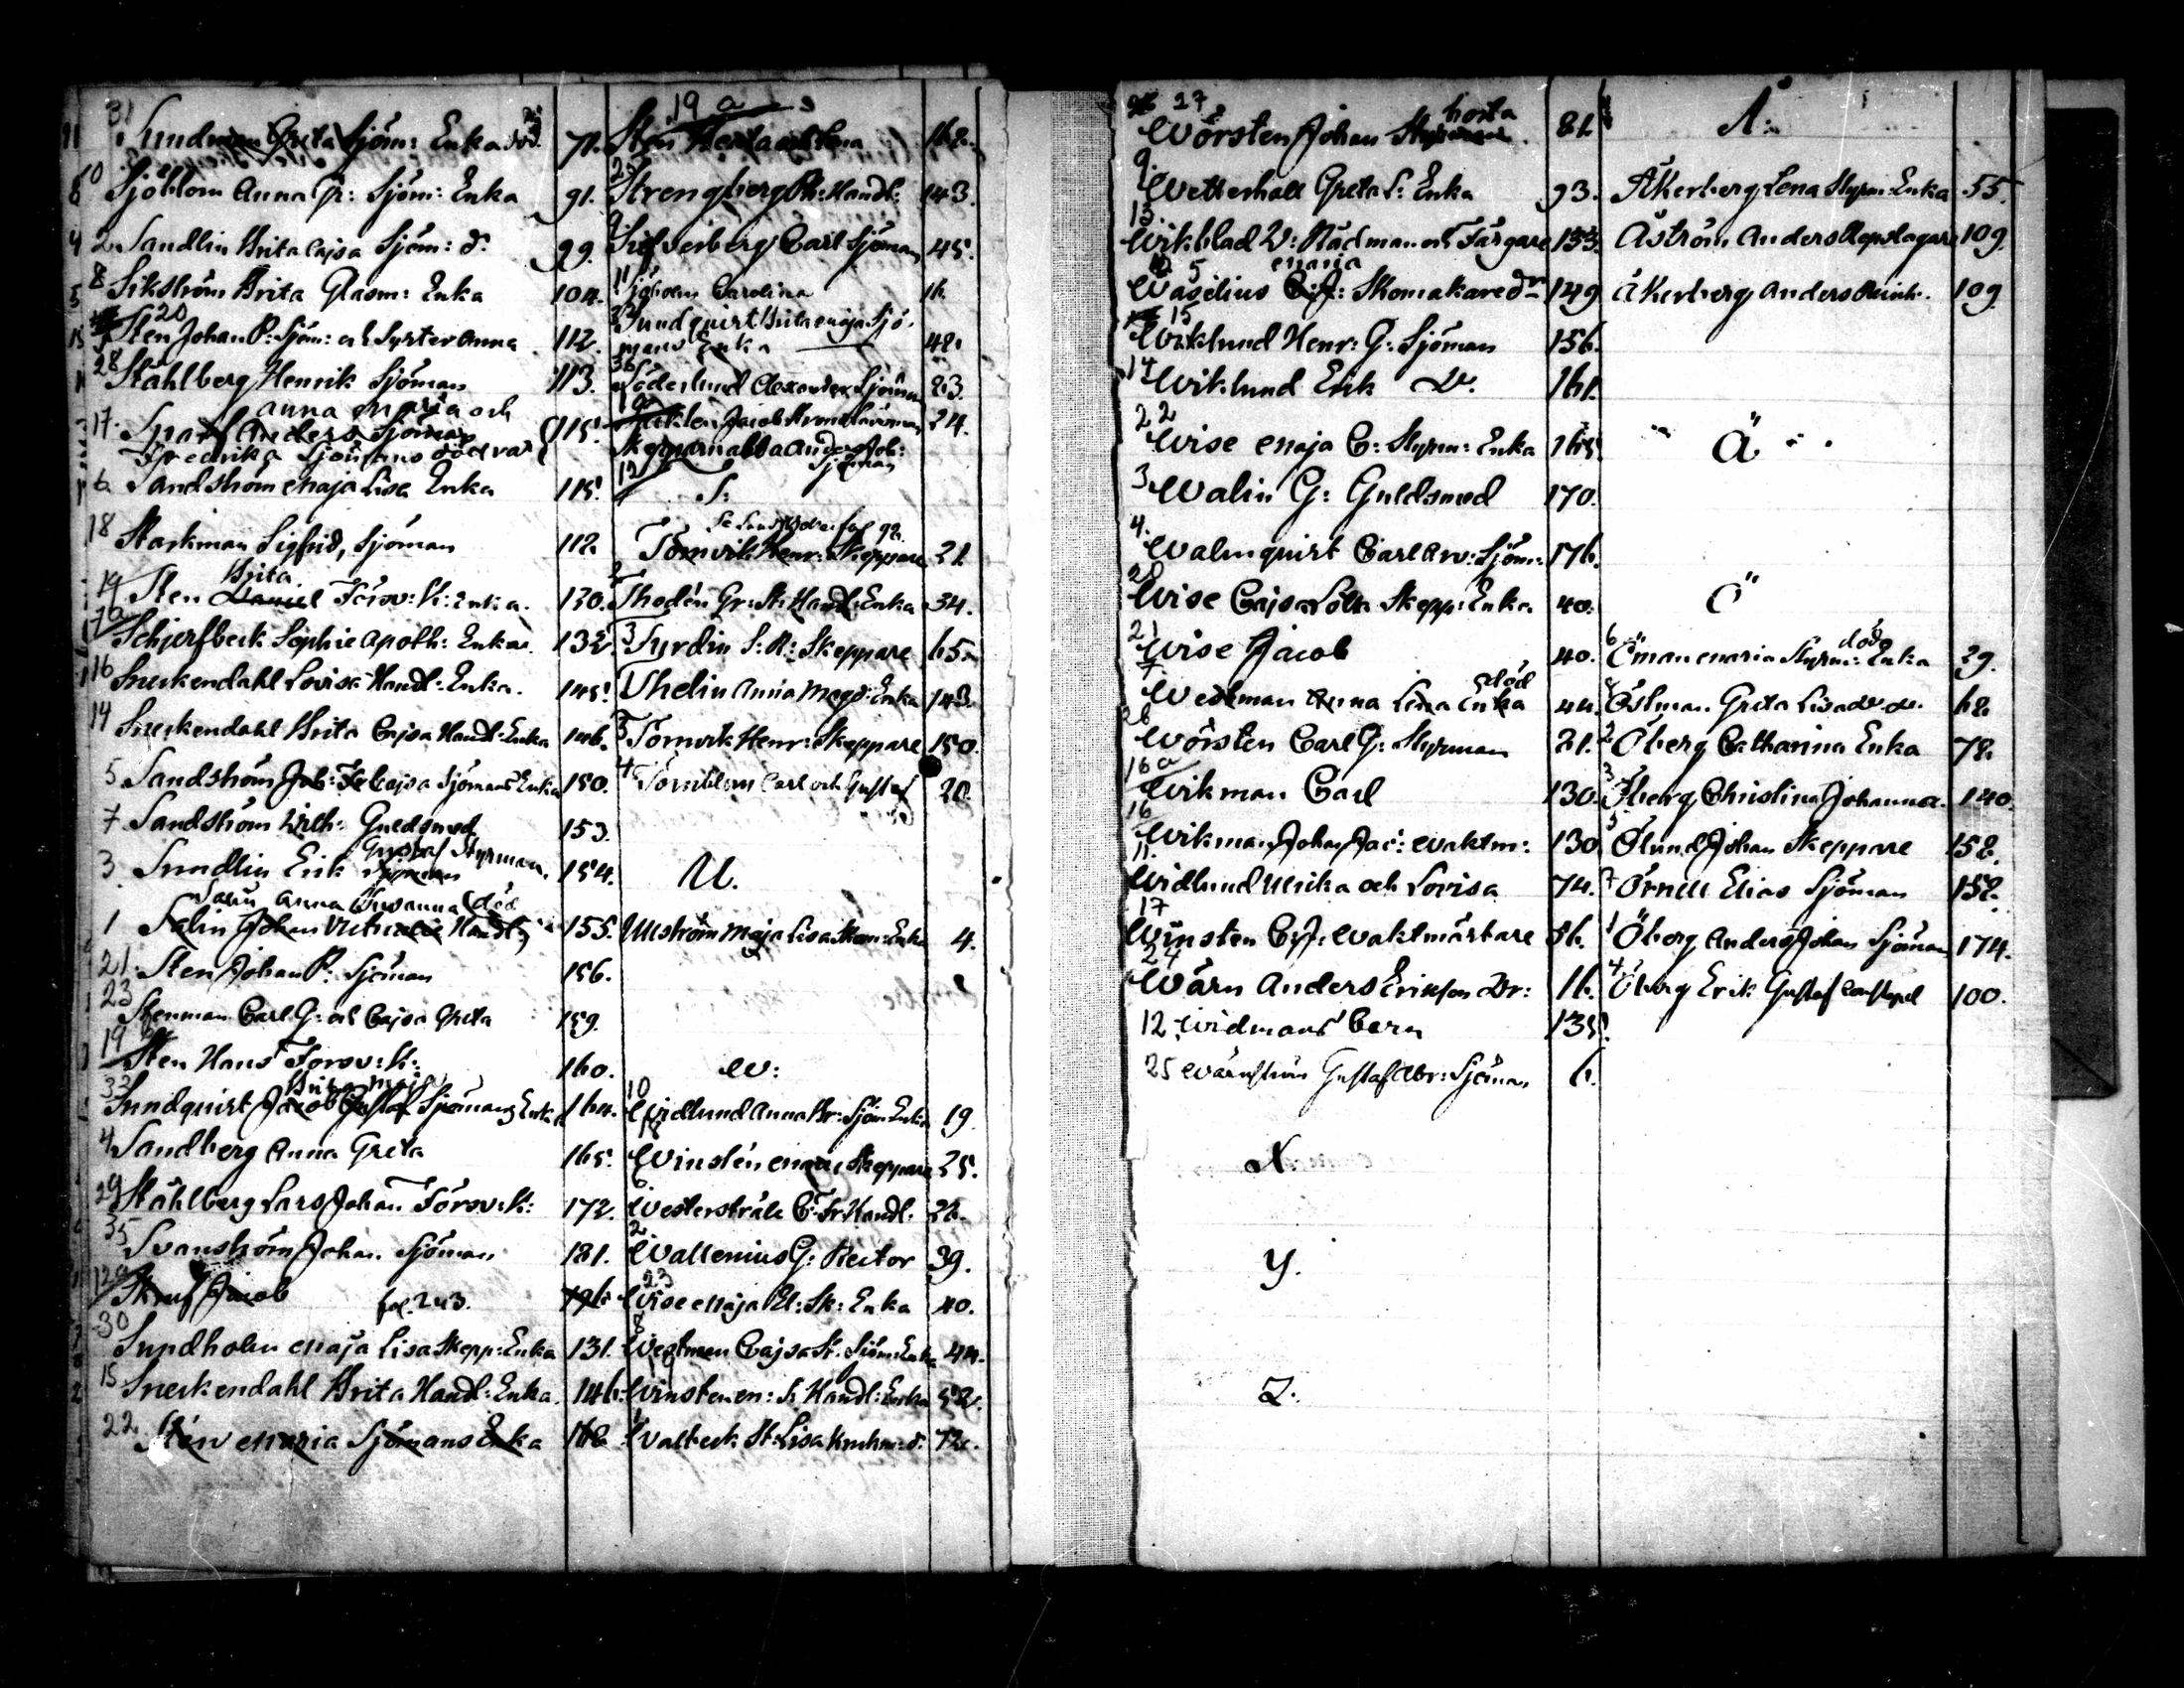 31
Sundman Greta Sjöm: Enka död. 71.
10
Sjöblom Anna Gr: Sjöm: Enka 91.
2 Sandlin Brita Cajsa Sjöm: d. 99.
8
Sikström Brita Glasm: Enka 104.
20
Sten Johan P: Sjöm: och Syster Anna 112.
28
Ståhlberg Henrik Sjöman 113.
Anna Maria och
17. Anders Sjöman 115.
Fredrika Sjömans
6 Sandström Maja Lisa Enka 115.
18 Starkman Sigfrid, Sjöman 112.
Brita
19 Sten Daniel Förov: k: Enka. 130.
7a
Schjerfbeck Sophie Apoth: Enka. 132
16 Sneckendahl Lovisa Handl: Enka. 145.
14
Sneckendahl Brita Cajsa Handl: Enka 146.
5 Sandström Cajsa Sjömans Enka 150.
7 Sandström Wilh: Guldsmed 153.
Gustaf Styrman.
3. Sundlin Erik Sjöman 154.
Anna Susanna död
1 Salin Johan Handl: 155.
21. Sten Johan P: Sjöman 156.
23
Stenman Carl G: och Cajsa Greta 159.
19
Sten Hans Förov: k: 160.
33 Brita Maja
Sundquist Jacob Gustaf Sjömans Enka 164.
4 Sandberg Anna Greta 165.
29 Ståhlberg Lars Johan Förov: k: 172.
35
Svanström Johan Sjöman 181.
12a
Jacob fol. 243. 196.
30
Sundholm Maja Lisa Skepp: Enka 131.
15
Sneckendahl Brita Handl: Enka. 146.
22. Sten Maria Sjömans Enka 112
19 a
Sten
Strengberg Ph: Handl: 143.
9
Silfverberg Carl Sjöman 45.
11
Sjöholm Carolina 16.
32
Sundquist Brita Maja Sjö-
mans Enka 48.
36
Söderlund Alexander Sjöman 83.
Jacob 24.
Anders Joh:
Sjöman
Törnvik Henr: Skeppare 21.
2
Thodén Gr: St: Handl: Enka 34.
3 Tyrdin S: R: Skeppare 65.
Thelin Anna Magd: Enka 143.
5 Törnvik Henr: Skeppare 150.
4 Törnblom Carl och Gustaf 20.
U.
Ullström Maja Lisa Skom: Enka 4.
W:
10
Widlund Anna Br: Sjöm: Enka 19.
18
Winstén Skeppare 25.
6
Westerstråle C: Fr: Handl. 32.
2
Wallenius G: Rector 39.
23
Wise Maja El: Sk: Enka 40.
8
Westman Cajsa St: Sjöm: Enka 44.
Winsten M: Handl: Enka 52.
1
Walbeck St: Lisa 72.
26 27
borta
Wörsten Johan Styrman 81.
9.
Wetterhall Greta L: Enka 93.
13.
Wikblad W: Rådman och Färgare 133.
5 Maria
Waselius C: J: Skomakare dr 149
15
Wiklund Henr: G: Sjöman 156.
14
Wiklund Erik 161.
22
Wise Maja C: Styrm: Enka 165
3 Walin G: Guldsmed 170.
4.
Walmquist Carl Arv: Sjöm: 176.
20
Wise Cajsa Lotta Skepp: Enka 40.
21
Wise Jacob 40.
7 död
Westman Anna Lisa Enka 44.
26
Wörsten Carl G: Styrman 81.
16a
Wikman Carl 130.
16
Wikman Johan Jac: Waktm: 130
11.
Widlund Ulrika och Lovisa 74.
17
Winsten C: J: Waktmästare 86.
24
Wärn Anders Eriksson Dr: 16.
12 Widmans Barn 135.
25 Wärnström Gustaf Abr: Sjöman 6.
X.
Y.
Z.
Å:
Åkerberg Lena Styrm: Enka 55.
Åström Anders Repslagare 109.
Åkerberg Anders 109
Ä
Ö
6 död
Öman Maria Styrm: Enka 29.
Östman Greta Lisa 62.
2 Öberg Catharina Enka 78.
3
Öberg Christina Johanna. 140.
5
Ölund Johan Skeppare 152.
7 Örnell Elias Sjöman 152.
1
Öberg Anders Johan Sjöman 174.
4
Öberg Erik Gustaf 100.